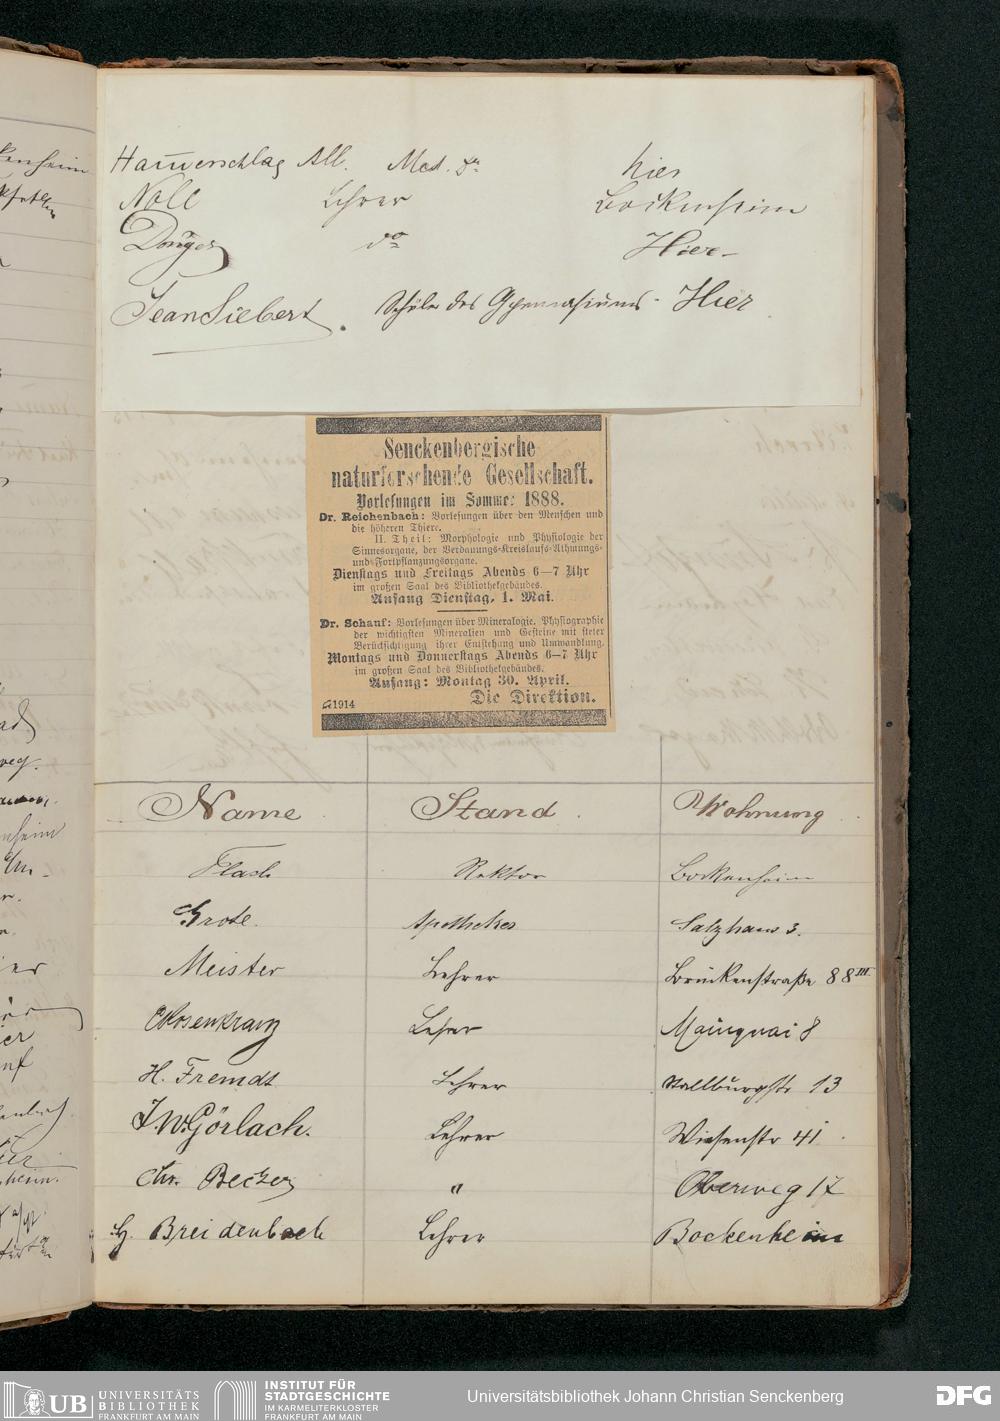 Ham̅erschlag All. Med. Dr. hier
Noll Lehrer Bockenheim
do Hier
Jean Siebert. Schüler des Gymnasiums. Hier
Senckenbergische
naturforschende Gesellschaft.
Vorlesungen im Sommer 1888.
Dr. Reichenbach: Vorlesungen über den Menschen und
die höheren Thiere.
II. Theil: Morphologie und Physiologie der
Sinnesorgane, der Verdauungs-Kreislaufs-Athmungs-
und Fortpflanzungsorgane.
Dienstags und Freitags Abends 6—7 Uhr
im großen Saal des Bibliothekgebäudes.
Anfang Dienstag, 1. Mai.
Dr. Schauf: Vorlesungen über Mineralogie. Physiographie
der wichtigsten Mineralien und Gesteine mit steter
Berücksichtigung ihrer Entstehung und Umwandlung.
Montags und Donnerstags Abends 6—7 Uhr
im großen Saal des Bibliothekgebäudes.
Anfang: Montag 30. April.
1914 Die Direktion.
Name Stand Wohnung
Flach Rektor Bockenheim
Grote. Apotheker Salzhaus 3.
Meister Lehrer Brückenstraße 88 III
Rosenkranz Lehrer Mainquai 8
H. Fremdt Lehrer Wallburgstr 13
J. W. Görlach. Lehrer Wiesenstr 41.
Chr. Becker " Oberweg 17
H. Breidenbach Lehrer Bockenheim
UB UNIVERSITÄTS
BIBLIOTHEK
FRANKFURT AM MAIN
INSTITUT FÜR
STADTGESCHICHTE
IM KARMELITERKLOSTER
FRANKFURT AM MAIN
Universitätsbibliothek Johann Christian Senckenberg
DFG